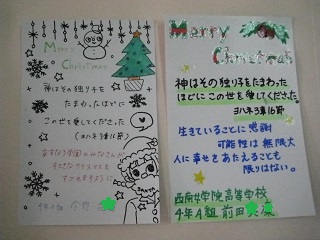 Merry
Christmas
神はその独り子を
たまわったほどに
この世を愛して下さった
(ヨハネ3章16節)
みなさんが
すてきなクリスマスを
Merry
Christmas
神はその独り子をたまわった
ほどにこの世を愛してくださった。
ヨハネ3章16節
生きていることに感謝
可能性は無限大
人に幸せをあたえることも
限りはない。
女学院高等学校
4年A組 前田